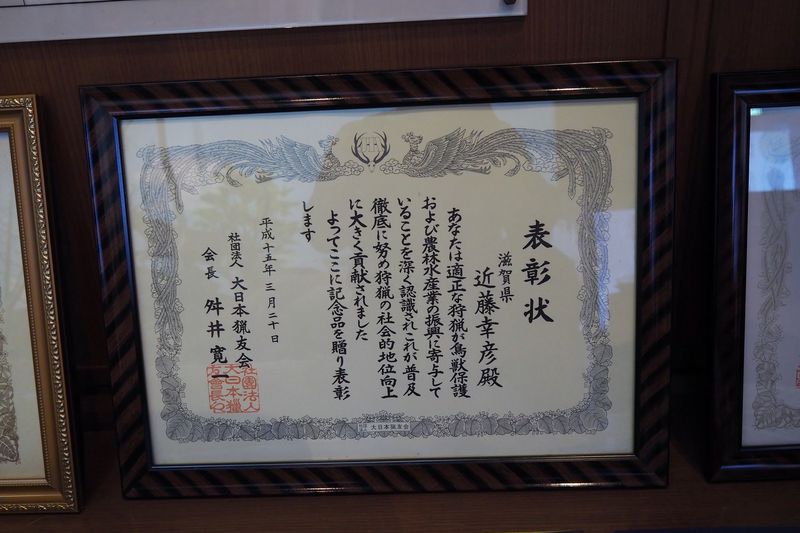 表彰状
滋賀県
近藤幸彦殿
あなたは適正な狩猟が鳥獣保護
および農林水産業の振興に寄与して
いることを深く認識されこれが普及
徹底に努め狩猟の社会的地位向上
に大きく貢献されました
よってここに記念品を贈り表彰
します
平成十五年三月二十日
社団法人 大日本猟友会
会長 舛井寛一
社團法人
大日本獵
友會長之
大日本猟友会